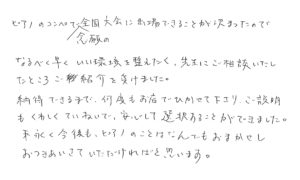 ピアノのコンペで念願の全国大会に出場できることが決まったので
なるべく早くいい環境を整えたく、先生にご相談いたし
たところご紹介を受けました。
納得できるまで、何度もお店でひかせて下さり、ご説明
もくわしくていねいで、安心して選択することができました。
末永く今後も、ピアノのことはなんでもおまかせし
おつきあいさせていただければと思います。